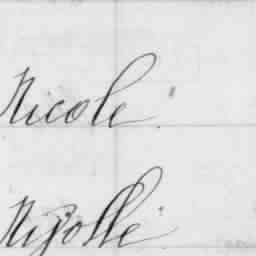 Nicole
Nijolle